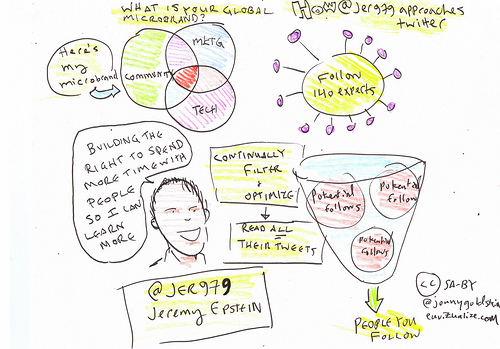 WHAT IS YOUR GLOBAL
MICROBRAND?
HOW @jer979 approaches
twitter
Here's
my
microbrand
COMMUNITY
MKTG
TECH
Follow
140 experts
BUILDING THE
RIGHT TO SPEND
MORE TIME WITH
PEOPLE
SO I CAN
LEARN
MORE
CONTINUALLY
FILTER
+
OPTIMIZE
READ ALL
THEIR TWEETS
Potential
follows
Potential
follow
Potential
follows
PEOPLE YOU
FOLLOW
@JER979
Jeremy EPSTEIN
(CC) SA-BY
@jonnygoldstein
envizualize.com